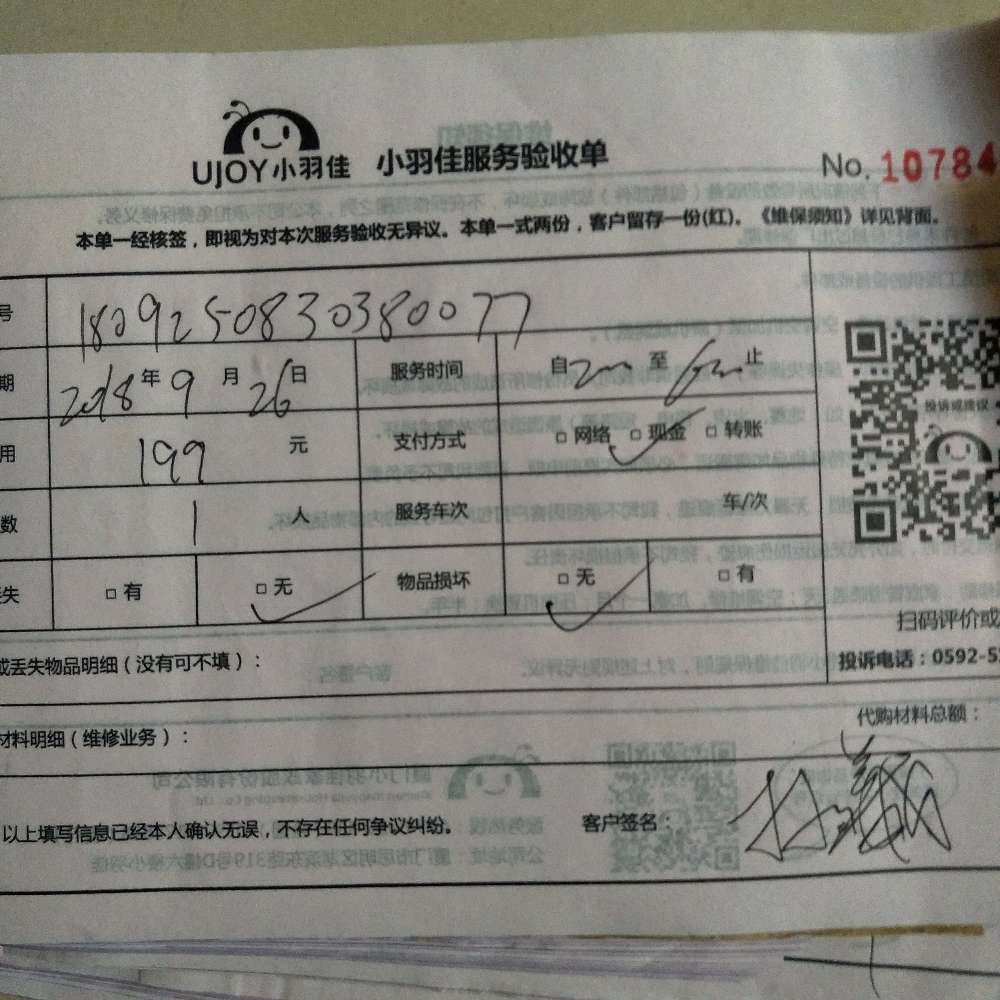 UJOY小羽佳 小羽佳服务验收单 No. 10784
本单一经核签，即视为对本次服务验收无异议。本单一式两份，客户留存一份(红)。《维保须知》详见背面。
号 1809250830380077
期 2018年9月26日 服务时间 自 至 止
用 199 元 支付方式 □网络 □现金 □转账
数 1 人 服务车次 车/次
失 □有 □无 物品损坏 □无 □有
投诉或建议
扫码评价或
投诉电话：0592-5
或丢失物品明细（没有可不填）：
代购材料总额：
材料明细（维修业务）：
以上填写信息已经本人确认无误，不存在任何争议纠纷。 客户签名：